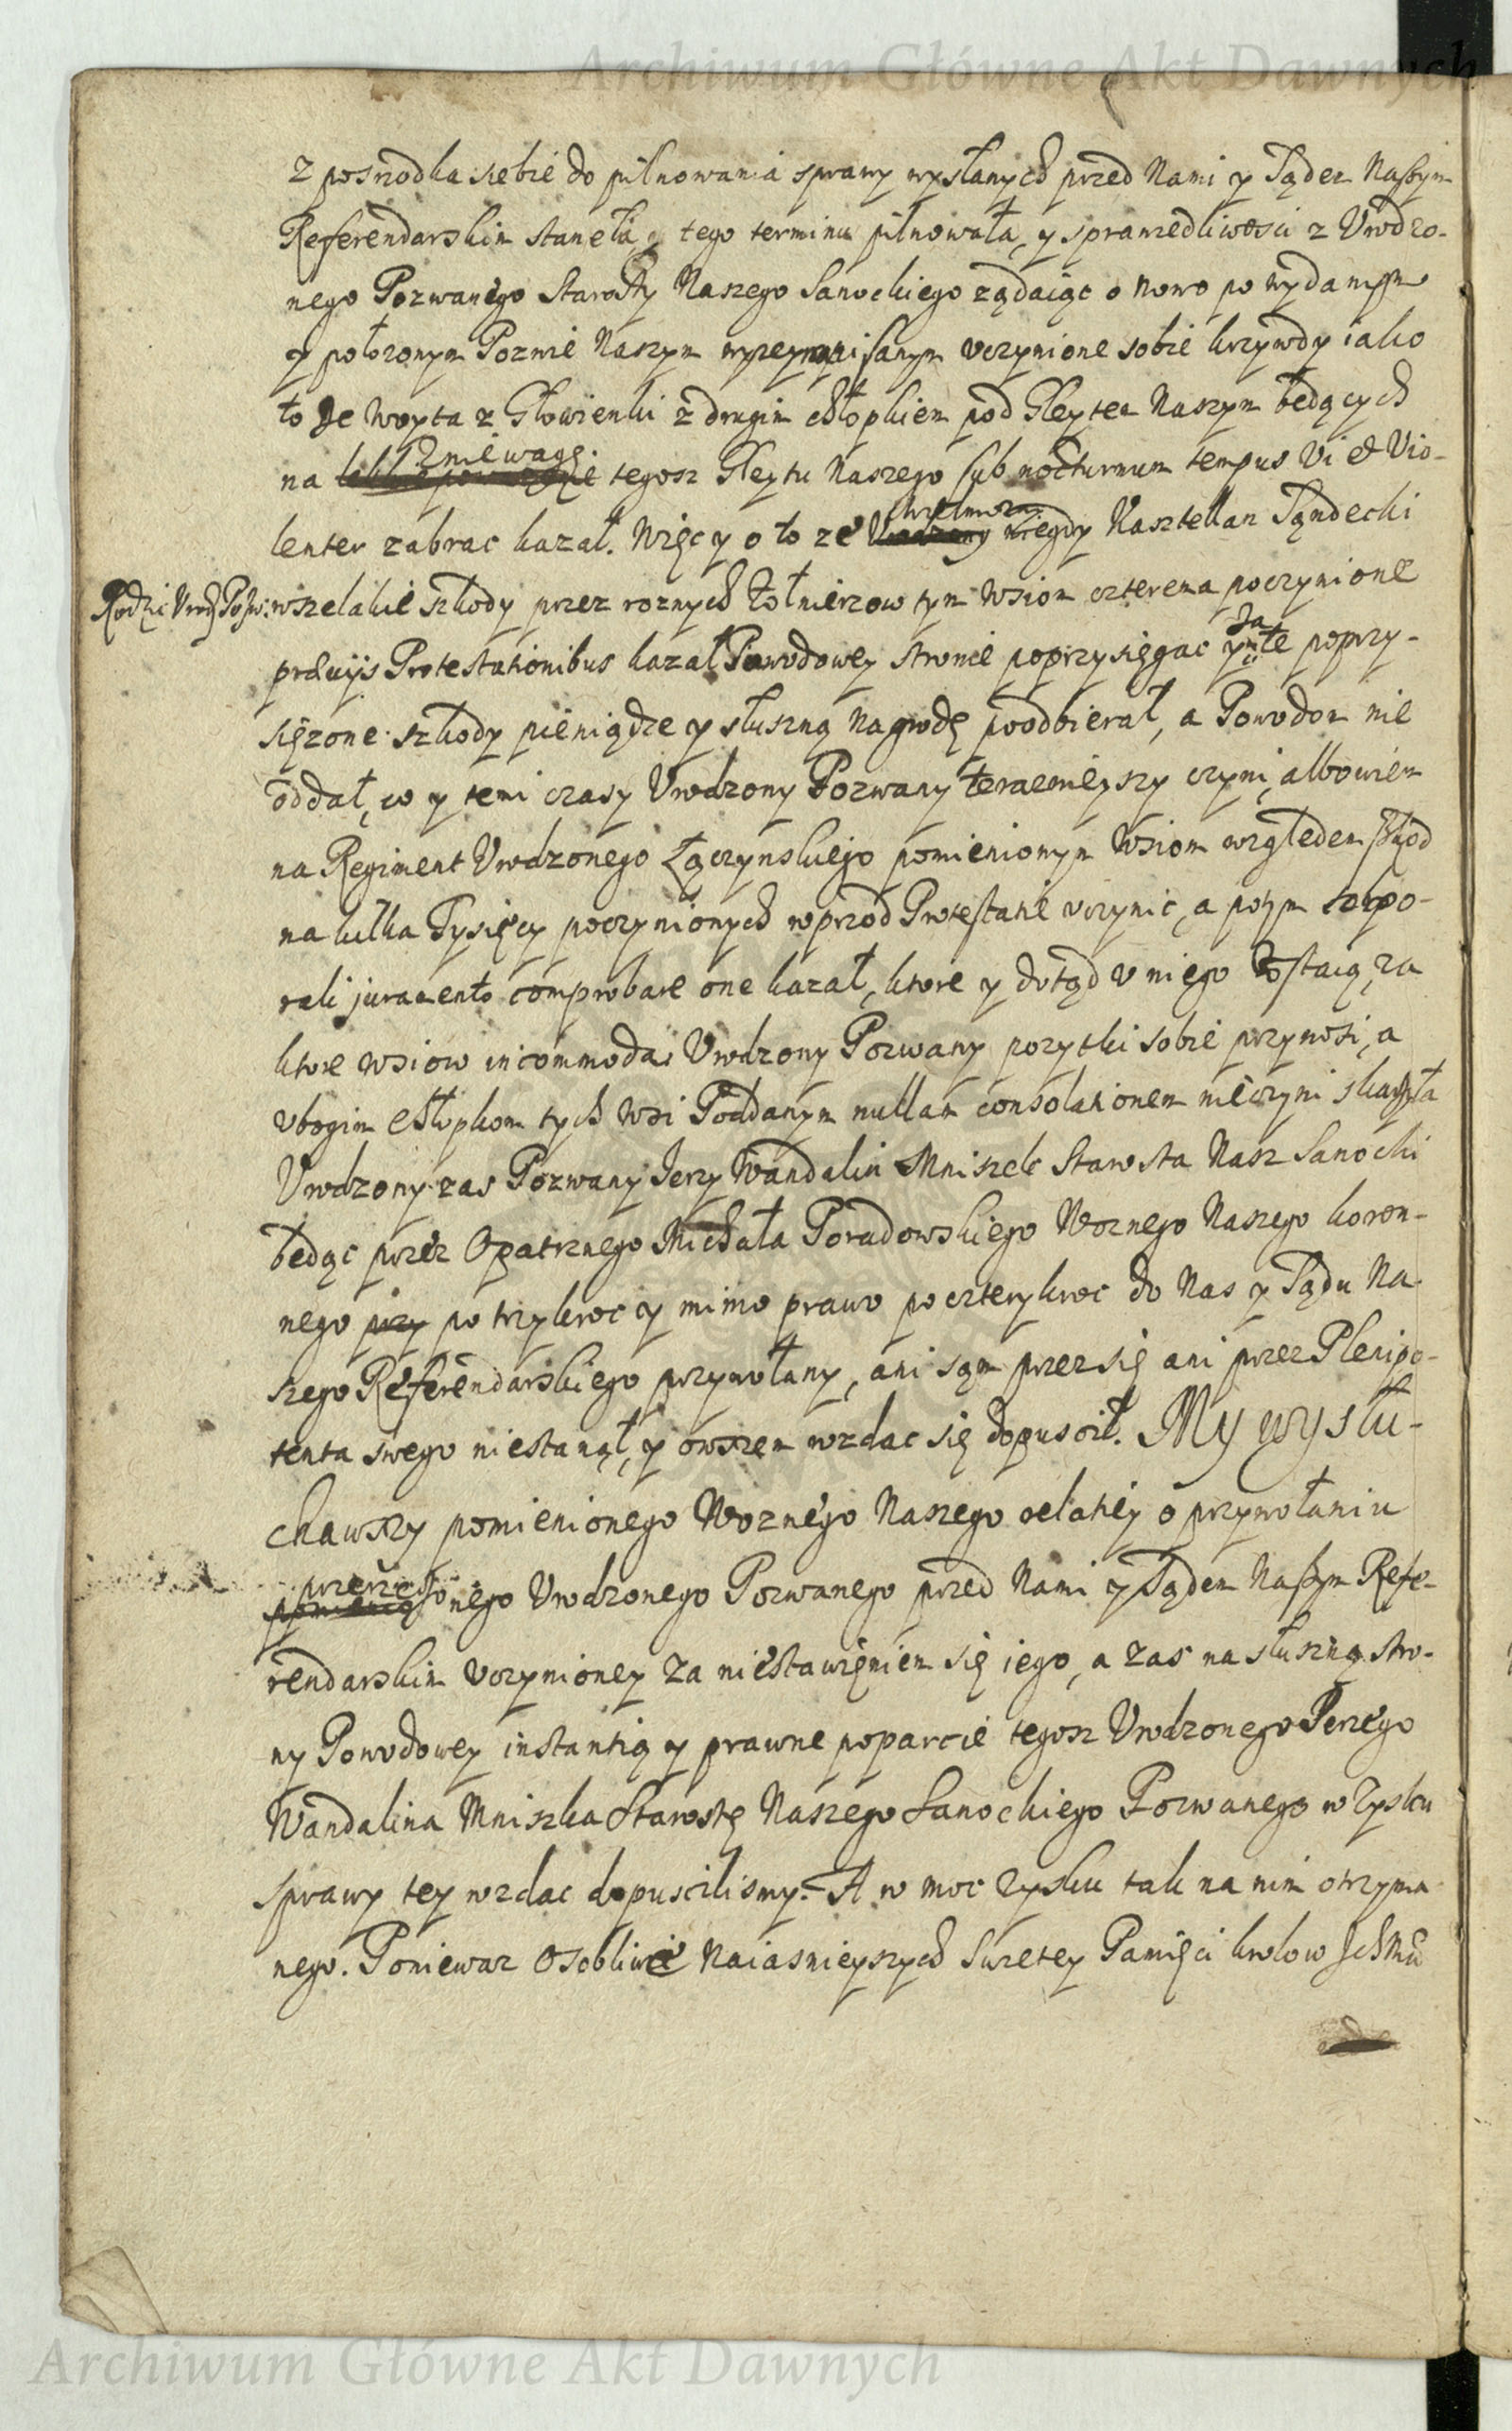 Archiwum Główne Akt Dawnych
z posrodka siebie do pilnowania sprawy wysłanych przed Nami y Sądem Naszym
Referendarskim stanęła y tego terminu pilnowała, y sprawiedliwosci z Urodzo-
nego Pozwanego Starosty Naszego Sanockiego ządaiąc o nowo po wydanym
y położonym Pozwie Naszym wyzey pisanym uczynione sobie krzywdy iako
to ze woyta z Głowienki z drugim chłopkiem pod Gleytem Naszym będących
na zniewagę tegosz Gleytu Naszego sub nocturnum tempus Vi et Vio-
lenter zabrac kazał. Więc y o to ze Wielmozny niegdy Kasztellan Sąndecki
Rodzic Urodz Pozw: wszelakie szkody przez roznych Zołnierzow tym Wsiom czterema poczynione
praeviis Protestationibus kazał Powodowey stronie poprzysięgac y za te poprzy-
sięzone szkody pieniądze y słuszną Nagrodę poodbierał, a Powodom nie
oddał, co y temi czasy Urodzony Pozwany teraznieyszy czyni, albowiem
na Regiment Urodzonego Łączynskiego pomienionym Wsiom względem szkod
na kilka Tysięcy poczynionych wprzod Protestatie uczynic, a potym corpo-
rali juramento comprobare one kazał, ktore y dotąd u niego zostaią, za
ktore wsiow incommoda Urodzony Pozwany pozytki sobie przynosi, a
ubogim chłopkom tych Wsi Poddanym nullam consolationem nieczyni
Urodzony zas Pozwany Jerzy Wandalin Mniszek Starosta Nasz Sanocki
będąc przez Opatrznego Michała Poradowskiego Woznego Naszego koron-
nego przy po trzykroc y mimo prawo po czterykroc do Nas y Sądu Na-
szego Referendarskiego przywołany, ani sąm przez się ani przez Plenipo-
tenta swego niestanął, y owszem wzdac się dopuscił. My wysłu-
chawszy pomienionego Woznego Naszego relatiey o przywołaniu
przerzeczonego Urodzonego Pozwanego przed Nami y Sądem Naszym Refe-
rendarskim uczynioney za niestawięniem się iego, a zas na słuszną stro-
ny Powodowey instantią y prawne poparcie tegosz Urodzonego Jerzego
Wandalina Mniszka Starostę Naszego Sanockiego Pozwanego w Zysku
sprawy tey wzdac dopuscilismy. A w moc Zysku tak na nim otrzyma
nego. Poniewaz Osobliwie Naiasnieyszych Swietey Pamięci krolow Ichmů
Archiwum Główne Akt Dawnych